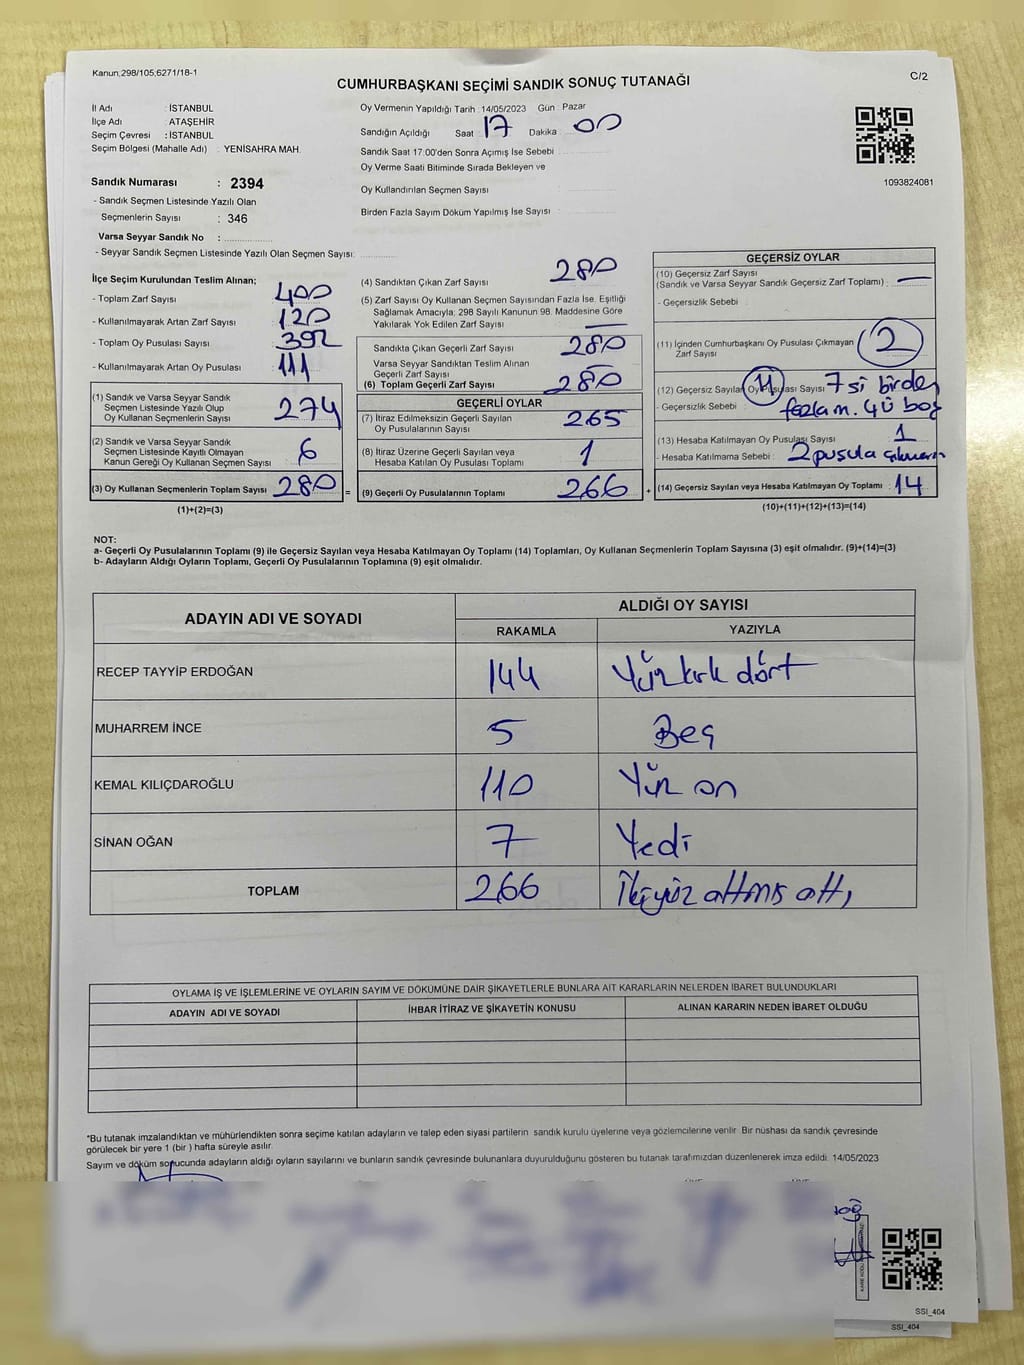 Kanun;298/105;6271/18-1
C/2
CUMHURBAŞKANI SEÇİMİ SANDIK SONUÇ TUTANAĞI
İl Adı : İSTANBUL
İlçe Adı : ATAŞEHİR
Seçim Çevresi : İSTANBUL
Seçim Bölgesi (Mahalle Adı) : YENİSAHRA MAH.
Sandık Numarası : 2394
- Sandık Seçmen Listesinde Yazılı Olan
Seçmenlerin Sayısı : 346
Varsa Seyyar Sandık No :
- Seyyar Sandık Seçmen Listesinde Yazılı Olan Seçmen Sayısı:
Oy Vermenin Yapıldığı Tarih : 14/05/2023 Gün : Pazar
Sandığın Açıldığı Saat 17 Dakika 00
Sandık Saat 17:00'den Sonra Açımış İse Sebebi
Oy Verme Saati Bitiminde Sırada Bekleyen ve
Oy Kullandırılan Seçmen Sayısı
Birden Fazla Sayım Döküm Yapılmış İse Sayısı :
1093824081
İlçe Seçim Kurulundan Teslim Alınan;
- Toplam Zarf Sayısı 400
- Kullanılmayarak Artan Zarf Sayısı 120
- Toplam Oy Pusulası Sayısı 392
- Kullanılmayarak Artan Oy Pusulası 111
(1) Sandık ve Varsa Seyyar Sandık
Seçmen Listesinde Yazılı Olup
Oy Kullanan Seçmenlerin Sayısı 274
(2) Sandık ve Varsa Seyyar Sandık
Seçmen Listesinde Kayıtlı Olmayan
Kanun Gereği Oy Kullanan Seçmen Sayısı 6
(3) Oy Kullanan Seçmenlerin Toplam Sayısı 280 =
(1)+(2)=(3)
(4) Sandıktan Çıkan Zarf Sayısı 280
(5) Zarf Sayısı Oy Kullanan Seçmen Sayısından Fazla İse, Eşitliği
Sağlamak Amacıyla; 298 Sayılı Kanunun 98. Maddesine Göre
Yakılarak Yok Edilen Zarf Sayısı —
Sandıkta Çıkan Geçerli Zarf Sayısı 280
Varsa Seyyar Sandıktan Teslim Alınan
Geçerli Zarf Sayısı —
(6) Toplam Geçerli Zarf Sayısı 280
GEÇERLİ OYLAR
(7) İtiraz Edilmeksizin Geçerli Sayılan
Oy Pusulalarının Sayısı 265
(8) İtiraz Üzerine Geçerli Sayılan veya
Hesaba Katılan Oy Pusulası Toplamı 1
(9) Geçerli Oy Pusulalarının Toplamı 266 +
GEÇERSİZ OYLAR
(10) Geçersiz Zarf Sayısı
(Sandık ve Varsa Seyyar Sandık Geçersiz Zarf Toplamı) : —
- Geçersizlik Sebebi
(11) İçinden Cumhurbaşkanı Oy Pusulası Çıkmayan
Zarf Sayısı 2
(12) Geçersiz Sayılan Oy Pusulası Sayısı 11 7 si birden
- Geçersizlik Sebebi : fazla m. 4ü boş
(13) Hesaba Katılmayan Oy Pusulası Sayısı 1
- Hesaba Katılmama Sebebi : 2 pusula çıkması
(14) Geçersiz Sayılan veya Hesaba Katılmayan Oy Toplamı : 14
(10)+(11)+(12)+(13)=(14)
NOT:
a- Geçerli Oy Pusulalarının Toplamı (9) ile Geçersiz Sayılan veya Hesaba Katılmayan Oy Toplamı (14) Toplamları, Oy Kullanan Seçmenlerin Toplam Sayısına (3) eşit olmalıdır. (9)+(14)=(3)
b- Adayların Aldığı Oyların Toplamı, Geçerli Oy Pusulalarının Toplamına (9) eşit olmalıdır.
ADAYIN ADI VE SOYADI
ALDIĞI OY SAYISI
RAKAMLA YAZIYLA
RECEP TAYYİP ERDOĞAN 144 Yüz kırk dört
MUHARREM İNCE 5 Beş
KEMAL KILIÇDAROĞLU 110 Yüz on
SİNAN OĞAN 7 Yedi
TOPLAM 266 İkiyüz altmış altı
OYLAMA İŞ VE İŞLEMLERİNE VE OYLARIN SAYIM VE DÖKÜMÜNE DAİR ŞİKAYETLERLE BUNLARA AİT KARARLARIN NELERDEN İBARET BULUNDUKLARI
ADAYIN ADI VE SOYADI İHBAR İTİRAZ VE ŞİKAYETİN KONUSU ALINAN KARARIN NEDEN İBARET OLDUĞU
*Bu tutanak imzalandıktan ve mühürlendikten sonra seçime katılan adayların ve talep eden siyasi partilerin sandık kurulu üyelerine veya gözlemcilerine verilir. Bir nüshası da sandık çevresinde
görülecek bir yere 1 (bir ) hafta süreyle asılır.
Sayım ve döküm sonucunda adayların aldığı oyların sayılarını ve bunların sandık çevresinde bulunanlara duyurulduğunu gösteren bu tutanak tarafımızdan düzenlenerek imza edildi. 14/05/2023
SSI_404
SSI_404